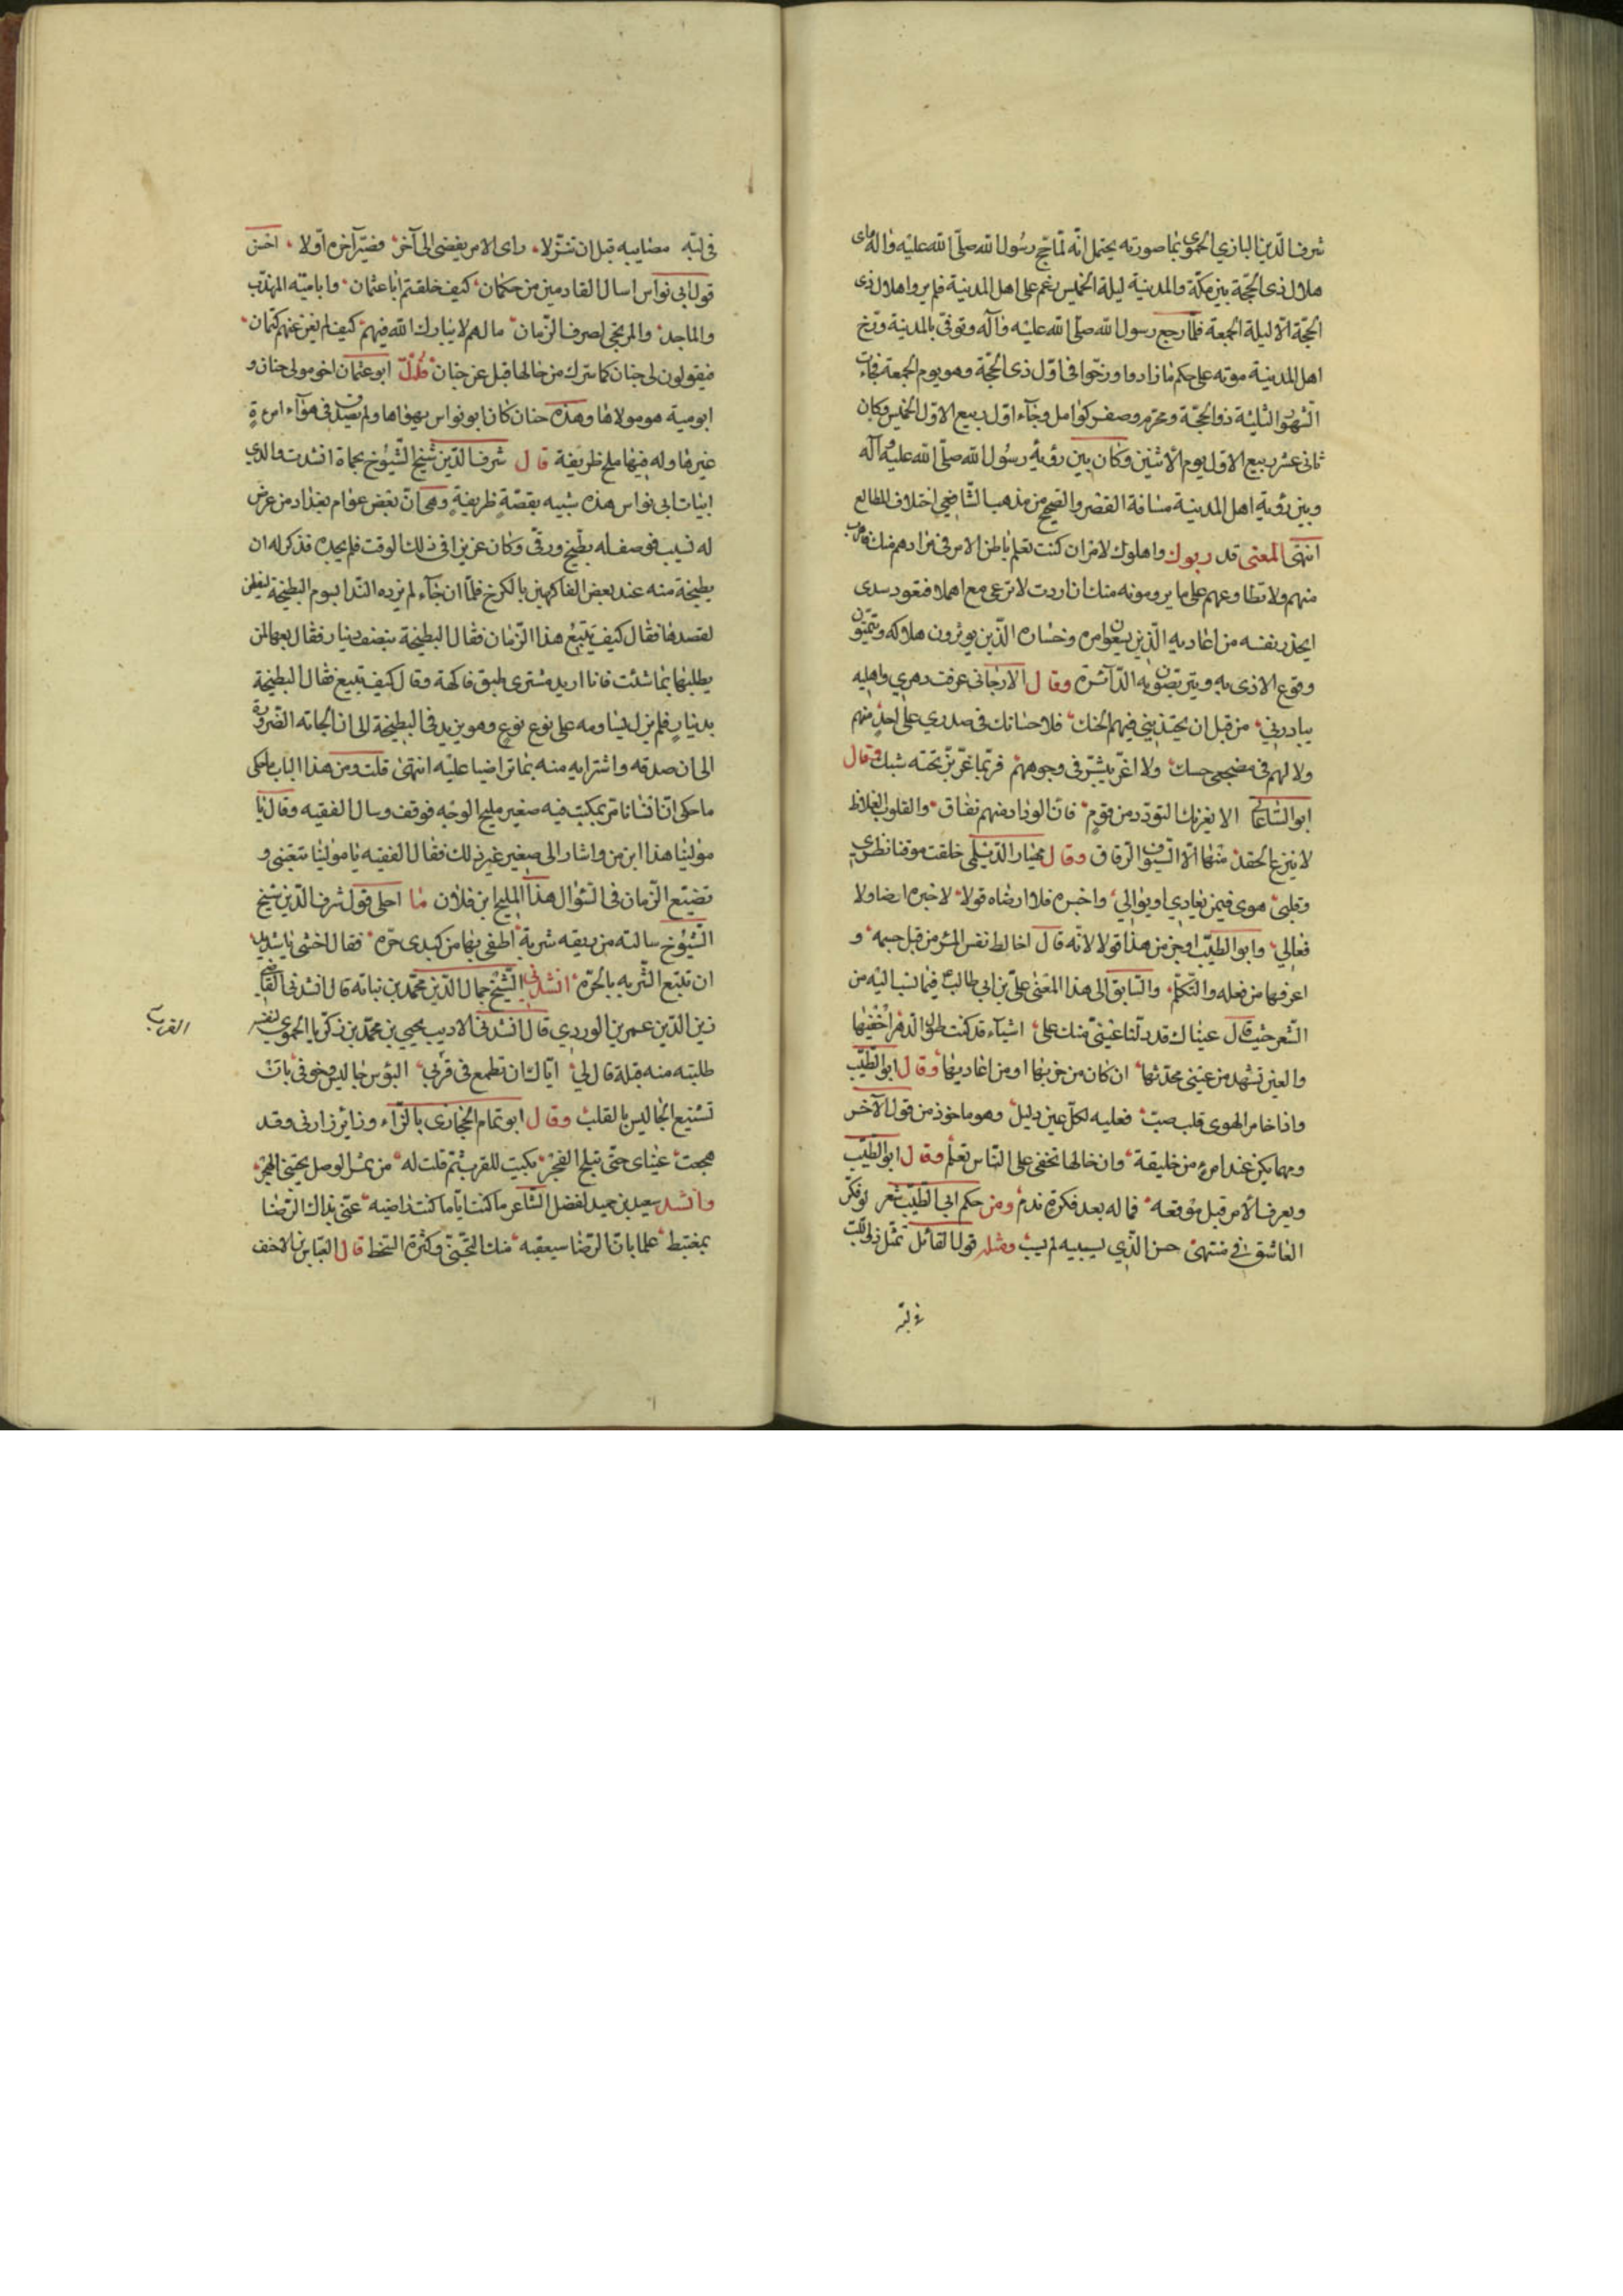 شرف الدين البارزي الحموي بما صورته يحتمل انه لما حج رسول الله صلى الله عليه واله راى
هلال ذى الحجة بين مكة والمدينة ليلة الخميس غم على اهل المدينة فلم يروا هلال ذى
الحجة الا ليلة الجمعة فلما رجع رسول الله صلى الله عليه وآله وتوفى بالمدينة ورخ
اهل المدينة موته على حكم ما زادوا ورخوا فى اول ذى الحجة وهو يوم الجمعة فجاءت
الشهور الثلثة ذو الحجة ومحرم وصفر كوامل وجاء اول ربيع الاول الخميس وكان
ثانى عشر ربيع الاول يوم الاثنين وكان بين رؤية رسول الله صلى الله عليه وآله
وبين رؤية اهل المدينة مسافة القصر والصحيح من مذهب الشافعي اختلاف المطالع
انتهى المعنى قد ربوك واهلوك لامر ان كنت تعلم باطن الامر فى مرادهم منك فاهرب
منهم ولا تطاوعهم على ما يرومونه منك ان اردت لا ترعى مع اهملا فتعود سدى
ايحذر بنفسه من اعاديه الذين يسعون امره وخساره الذين يوثرون هلاكه ويتمنون
وقوع الاذى به ويتربصون به الدآئرة وقال الارجانى عرفت دهري واهليه
ببادرتي من قبل ان يحتذبني فيهم الحنك فلا حسانك فى صدري على احد منهم
ولا لهم فى مضجعى حسك ولا اغر ببشر فى وجوههم فربما غر بر تحته شبك وقال
ابو الشاعا الا يغرنك التودد من قوم فان الوداد منهم نفاق والقلوب الغلاظ
لا ينزع الحقد منها الا السيوف الرقاق وقال مهيار الديلمي خلقت موقنا نظري
وقلبي هوى فيمن يعادي او يوالي واخبره فلا ارضاه قولا لاخبره ارضا ولا
فعالي وابو الطيب اوجز من هذا قولا لانه قال اخالط نفس المرء من قبل جسمه و
اعرفها من فعله والتكلم والسابق الى هذا المعنى على بن ابي طالب فيما نسب اليه من
الشعر حيث قال عيناك قد دلتا عيني منك على اشيآء قد كنت طول الدهر اخفيها
والعين تشهد من عيني محدثها ان كان من حزبها او من اعاديها وقال ابو الطيب
واذا خامر الهوى قلب صب فعليه لكل عين دليل وهو ماخوذ من قول الآخر
ومهما يكن عند امرء من خليقة وان خالها تخفى على الناس تعلم وقال ابو الطيب
ويعرف الامر قبل موقعه فما له بعد فكرة ندم ومن حكم ابي الطيب شعر لو فكر
العاشق في منتهى حسن الذي يسبيه لم يسب ومثله قول القائل تمثل ذو اللب
فى لبه
فى لبه مصايبه قبل ان تنزلا راى الامر يفضى الى آخر فصير آخره اولا احسن
قول ابى نواس اسال القادمين من حكمان كيف خلفتم ابا عثمان وابا ميه المهذب
والماجد والمرتجى لصرف الزمان ما لهم لا يبارك الله فيهم كيف لم يغن عنهم كتمان
فيقولون لى جنان كما سرك من حالها فسل عن جنان قلت ابو عثمان اخو مولى جنان و
ابو ميه هو مولاها وهذه جنان كان ابو نواس يهواها ولم يصدق فى هوآء امرءة
غيرها وله فيها ملح ظريفة قال شرف الدين شيخ الشيوخ بحماة انشدت والدي
ابيات ابى نواس هذه شبيه بقصة ظريفة وهى ان بعض عوام بغداد مرض
له نسيب فوصف له بطيخ ورقى وكان عزيزا فى ذلك الوقت فلم يجده فذكر له ان
بطيخة منه عند بعض الفاكهين بالكرخ فلما ان جآء لم يزده الندا بسوم البطيخة ليفطن
لقصدها فقال كيف تبيع هذا الرمان فقال البطيخة بنصف دينار فقال بعها لمن
يطلبها بما شئت فانا اريد مشترى طبق فاكهة وقال كيف تبيع فقال البطيخة
بدينار فلم يزل يساومه على نوع نوع وهو يزيد فى البطيخة الى ان الجاته الضرورة
الى ان صدقه واشترايه منه بما تراضيا عليه انتهى قلت ومن هذا الباب ما حكى
ما حكى ان انسانا مر بمكتب فيه صغير مليح الوجه فوقف وسال الفقيه وقال يا
مولينا هذا ابن من واشار الى صغير غير ذلك فقال الفقيه يا مولينا تتعبنى و
تضيع الزمان فى السؤال هذا المليح ابن فلان ما احلى قول شرف الدين شيخ
الشيوخ سالته من ريقه شربة اطفى بها من كبدى حره فقال اخشى يا شديد
ان تتبع الشربه بالجره انشدنى الشيخ جمال الدين محمد بن نباته قال انشدنى القاضى
زين الدين عمر بن الوردي قال انشدنى الاديب يحيى بن محمد بن زكريا الحموي لنفسه
طلبته منه قبلة قال لي اياك ان تطمع فى قربى البوس جاليس وخوفى بان
تستتبع الجاليس بالقلب وقال ابو تمام الحجازى بالزاء وزائر زارنى وقد
هجعت عيناى حتى تبلج الفجر بكيت للقرب ثم قلت له من ثمر الوصل يجتنى الهجر
وانشد سعيد بن حميد لفضل الشاعر ما كنت ايام كنت راضيه عنى بذاك الرضا
بمغتبط علما بان الرضا سيعقبه منك التجنى وكثرة السخط قال العباس بن الاحنف
القرب